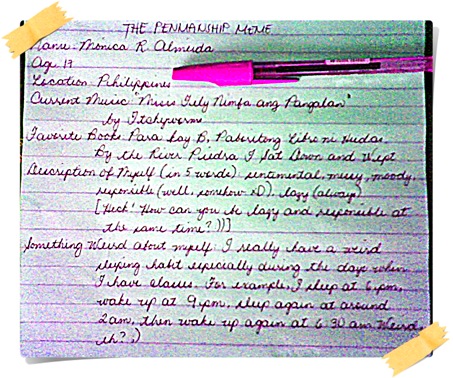 THE PENMANSHIP MEME
Name: Monica R. Almeida
Age: 19
Location: Philippines
Current Music: "Miss Tily Nimfa ang Pangalan"
by Itchyworms
Favorite Book: Para Kay B, Paboritong Libro ni Hudas,
By the River Piedra I Sat Down and Wept
Description of Myself (in 5 words): sentimental, messy, moody,
responsible (well, somehow xD), lazy (always)
[Heck! How can you be lazy and responsible at
the same time? )))]
Something Weird about myself: I really have a weird
sleeping habit especially during the days when
I have classes. For example, I sleep at 6 pm,
wake up at 9 pm, sleep again at around
2am, then wake up again at 6:30 am. Weird,
eh? ;)